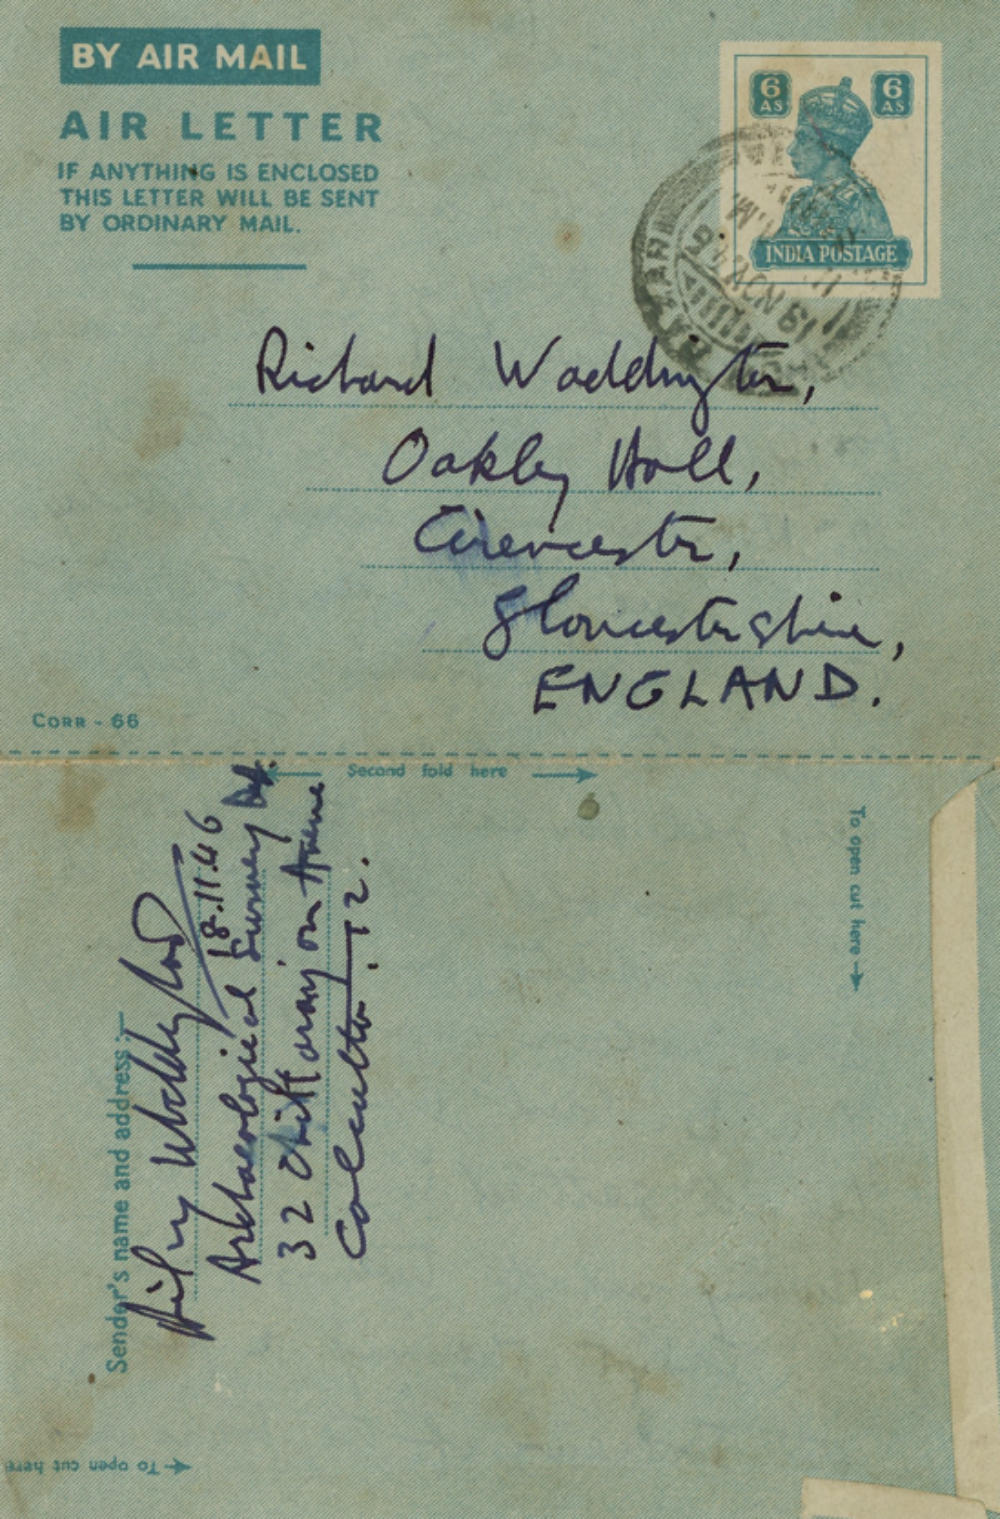 BY AIR MAIL
AIR LETTER
IF ANYTHING IS ENCLOSED
THIS LETTER WILL BE SENT
BY ORDINARY MAIL.
6 AS
6 AS
INDIA POSTAGE
19 NOV 46
Richard Waddington,
Oakley Hall,
Cirencester,
Gloucestershire,
ENGLAND.
CORR - 66
Second fold here
To open cut here
Sender's name and address:—
Hilary Waddington
18.11.46
Archaeological Survey Dept.
32 Chittaranjan Avenue
Calcutta. 12.
To open cut here